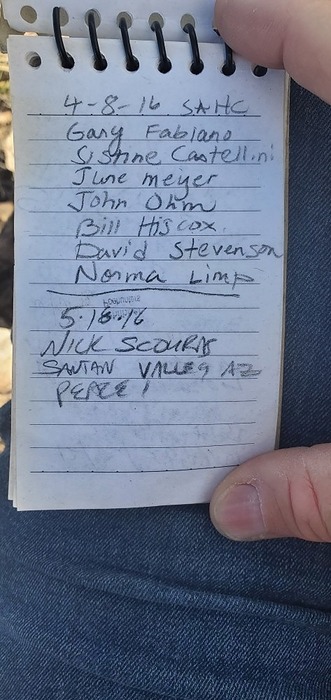 4-8-16 SAHC
Gary Fabiano
Sistine Castellini
June meyer
John Ohm
Bill Hiscox
David Stevenson
Norma Limp
5·18·16
NICK SCOURIS
SANTAN VALLEY AZ
PEACE!